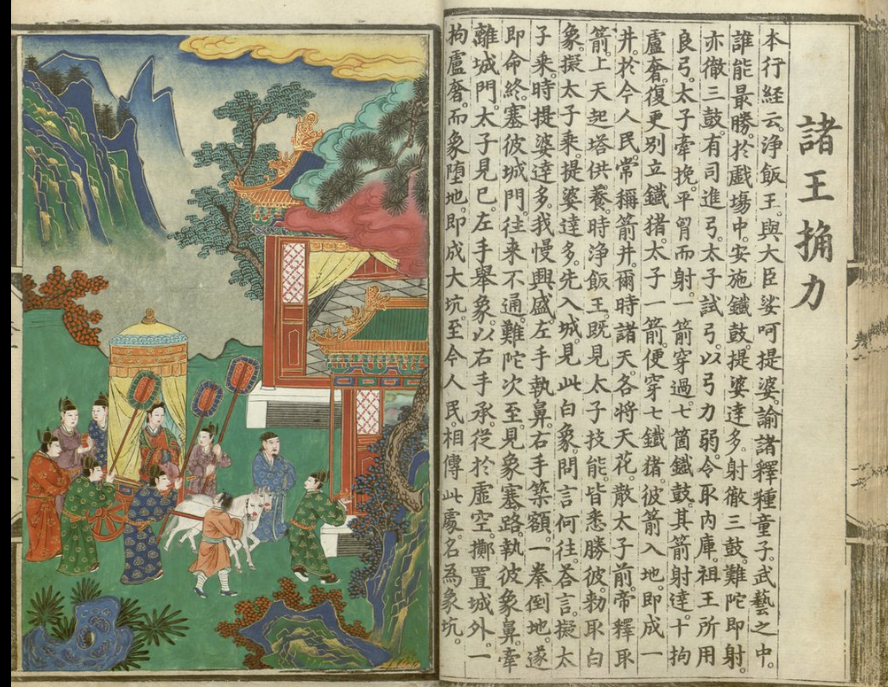 諸王捔力
本行經云。淨飯王。與大臣娑呵提婆。諭諸釋種童子。武藝之中。
誰能最勝。於戲場中。安施鐵鼓。提婆達多。射徹三鼓。難陀即射。
亦徹三鼓。有司進弓。太子試弓。以弓力弱。令取內庫。祖王所用
良弓。太子牽挽。平胷而射。一箭穿過七箇鐵鼓。其箭射達。十拘
盧奢。復更別立鐵猪。太子一箭。便穿七鐵猪。彼箭入地。即成一
井。於今人民。常稱箭井。爾時諸天。各將天花。散太子前。帝釋取
箭。上天起塔供養。時淨飯王。既見太子技能。皆悉勝彼。勑取白
象。擬太子乘。提婆達多。先入城。見此白象。問言何往。荅言。擬太
子乘。時提婆達多。我慢興盛。左手執鼻。右手築額。一拳倒地。遂
即命終。塞彼城門。往來不通。難陀次至。見象塞路。執彼象鼻。牽
離城門。太子見已。左手舉象。以右手承。從於虛空。擲置城外。一
拘盧奢。而象墮地。即成大坑。至今人民。相傳此處。名為象坑。